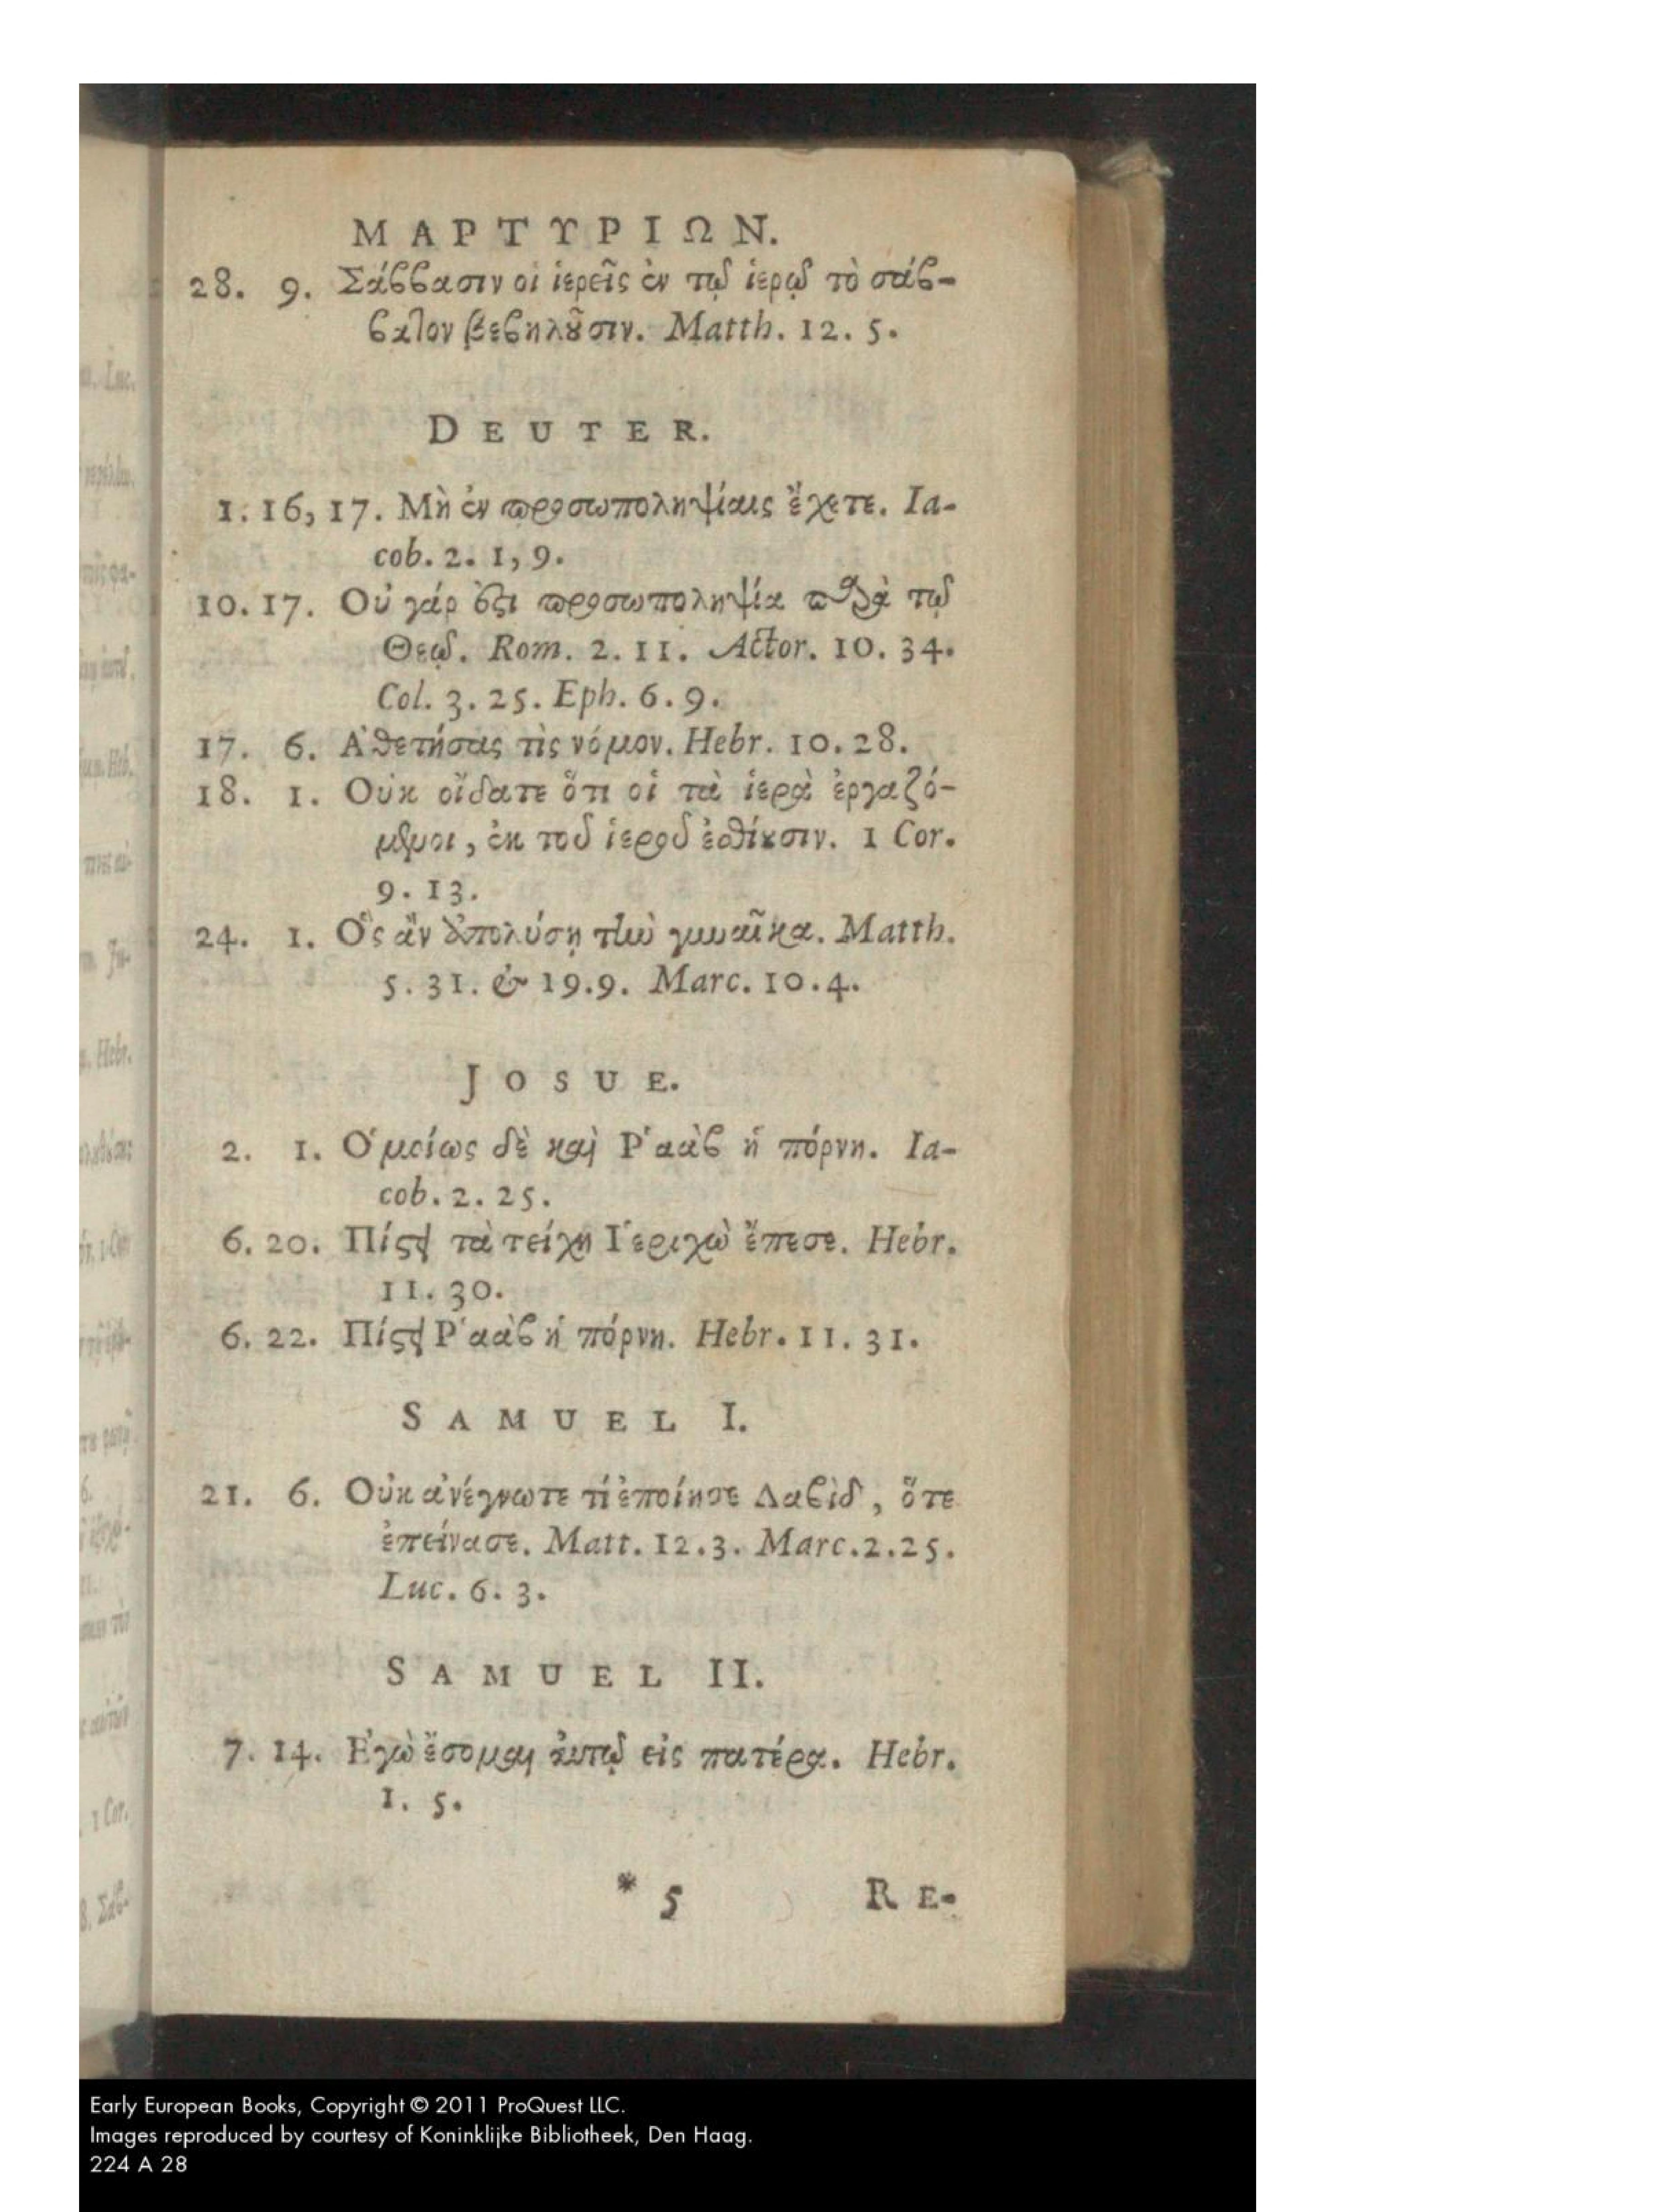 ΜΑΡΤΥΡΙΩΝ.
28. 9. Σάββασιν οἱ ἱερεῖς ἐν τῷ ἱερῷ τὸ σάβ-
βατον βεβηλοῦσιν. Matth. 12. 5.
DEUTER.
1. 16, 17. Μὴ ἐν προσωποληψίαις ἔχετε. Ia-
cob. 2. 1, 9.
10. 17. Οὐ γάρ ἐστι προσωποληψία παρὰ τῷ
Θεῷ. Rom. 2. 11. Actor. 10. 34.
Col. 3. 25. Eph. 6. 9.
17. 6. Ἀθετήσας τὶς νόμον. Hebr. 10. 28.
18. 1. Οὐκ οἴδατε ὅτι οἱ τὰ ἱερὰ ἐργαζό-
μενοι, ἐκ τοῦ ἱεροῦ ἐσθίουσιν. 1 Cor.
9. 13.
24. 1. Ὃς ἂν ἀπολύσῃ τὴν γυναῖκα. Matth.
5. 31. & 19. 9. Marc. 10. 4.
JOSUE.
2. 1. Ὁμοίως δὲ καὶ Ῥαὰβ ἡ πόρνη. Ia-
cob. 2. 25.
6. 20. Πίστει τὰ τείχη Ἱεριχὼ ἔπεσε. Hebr.
11. 30.
6. 22. Πίστει Ῥαὰβ ἡ πόρνη. Hebr. 11. 31.
SAMUEL I.
21. 6. Οὐκ ἀνέγνωτε τί ἐποίησε Δαβὶδ, ὅτε
ἐπείνασε. Matt. 12. 3. Marc. 2. 25.
Luc. 6. 3.
SAMUEL II.
7. 14. Ἐγὼ ἔσομαι αὐτῷ εἰς πατέρα. Hebr.
1. 5.
* 5 RE-
Early European Books, Copyright © 2011 ProQuest LLC.
Images reproduced by courtesy of Koninklijke Bibliotheek, Den Haag.
224 A 28